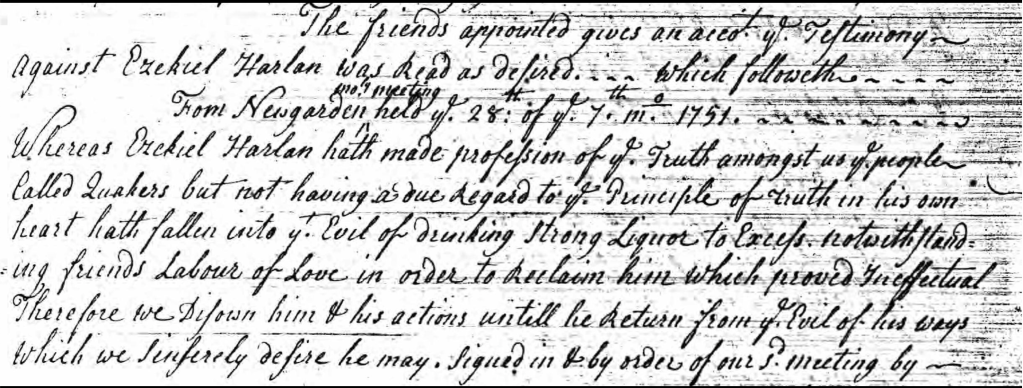 The friends appointed gives an acco.t y.e Testimony
against Ezekiel Harlan was Read as desired. which followeth
mo.ly meeting
From Newgarden held y.e 28.th of y.e 7.th m.o 1751.
Whereas Ezekiel Harlan hath made profession of y.e Truth amongst us y.e people
Called Quakers but not having a due Regard to y.e Principle of truth in his own
heart hath fallen into y.e Evil of drinking Strong Liquor to Excess notwithstand=
=ing friends Labour of Love in order to Reclaim him which proved Ineffectual
Therefore we Disown him & his actions untill he Return from y.e Evil of his ways
which we Sinserely desire he may. Signed in & by order of our s.d meeting by